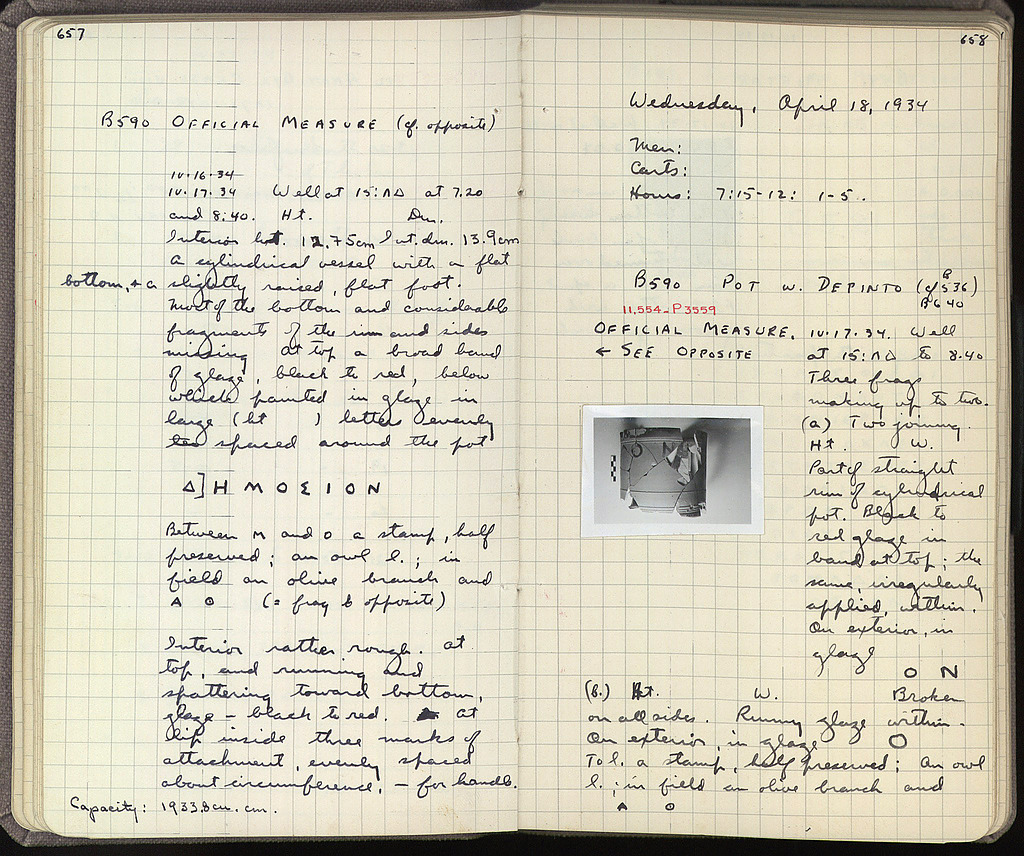 657
B590 OFFICIAL MEASURE (cf. opposite)
IV·16·34
IV·17·34 Well at 15:ΛΔ at 7.20
and 8:40. Ht. Dm.
Interior ht. 12.75cm Int. dm. 13.9cm
A cylindrical vessel with a flat
bottom, + a slightly raised, flat foot.
Most of the bottom and considerable
fragments of the rim and sides
missing at top a broad band
of glaze, black to red, below
which painted in glaze in
large (ht ) letters evenly
spaced around the pot
Δ]ΗΜΟΣΙΟΝ
Between M and O a stamp, half
preserved; an owl l.; in
field an olive branch and
A Θ (= frag b opposite)
Interior rather rough. at
top, and running and
spattering toward bottom,
glaze – black to red. at
lip inside three marks of
attachment, evenly spaced
about circumference, – for handle.
Capacity: 1933.8cu. cm.
658
Wednesday, April 18, 1934
Men:
Carts:
Hours: 7:15-12: 1-5.
B590 POT w. DEPINTO (cf B 536)
B640
11,554-P3559
OFFICIAL MEASURE. IV·17·34. Well
← SEE OPPOSITE at 15:ΛΔ to 8.40
Three frags
making up to two.
(a) Two joining.
Ht. W.
Part of straight
rim of cylindrical
pot. Black to
red glaze in
band at top; the
same, irregularly
applied, within.
On exterior, in
glaze
O N
(b.) Ht. W. Broken
on all sides. Runny glaze within.
On exterior, in glaze O
To l. a stamp, half preserved; an owl
l.; in field an olive branch and
A Θ